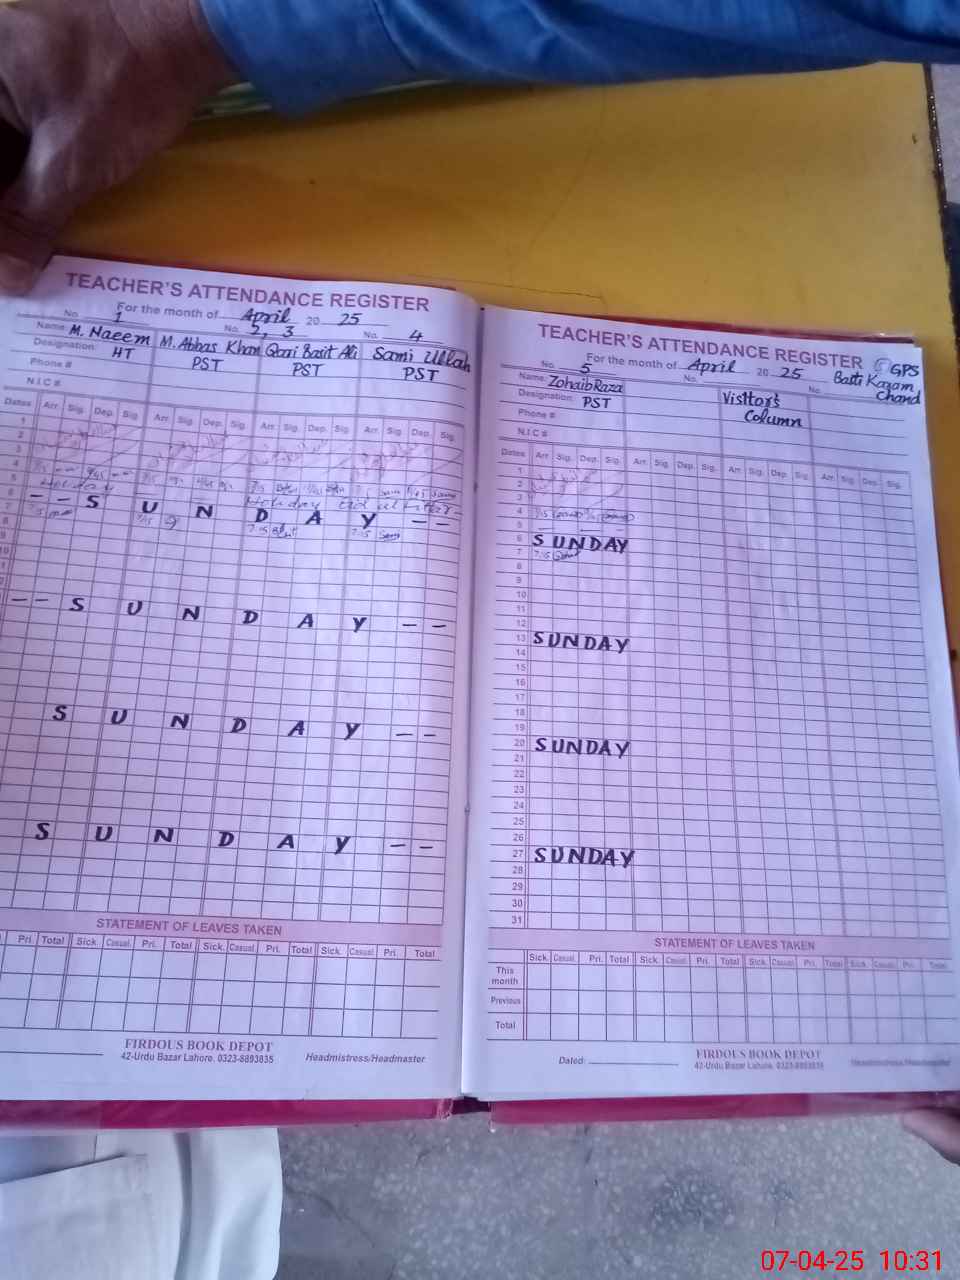 TEACHER'S ATTENDANCE REGISTER
For the month of April 20 25
No. 1 No. 2, 3 No. 4
Name M. Naeem M. Abbas Khan Qari Basit Ali Sami Ullah
Designation: HT PST PST PST
Phone #
N.I.C #
Dates Arr. Sig. Dep. Sig. Arr. Sig. Dep. Sig. Arr. Sig. Dep. Sig. Arr. Sig. Dep. Sig.
1
2
3
4
5 Holiday
6 - - S U N D A Y - -
7 7:15 7:15 7:15
8
9
10
- - S U N D A Y - -
S U N D A Y - -
S U N D A Y - -
STATEMENT OF LEAVES TAKEN
Pri. Total Sick. Casual. Pri. Total Sick. Casual. Pri. Total Sick. Casual. Pri. Total
FIRDOUS BOOK DEPOT
42-Urdu Bazar Lahore. 0323-8893835 Headmistress/Headmaster
TEACHER'S ATTENDANCE REGISTER
GPS
For the month of April 20 25 Basti Karam
Chand
No. 5 No. No.
Name. Zohaib Raza Visitor's
Designation: PST Column
Phone #
N.I.C #
Dates Arr. Sig. Dep. Sig. Arr. Sig. Dep. Sig. Arr. Sig. Dep. Sig. Arr. Sig. Dep. Sig.
1
2
3
4 7:15
5
6 SUNDAY
7 7:15
8
9
10
11
12
13 SUNDAY
14
15
16
17
18
19
20 SUNDAY
21
22
23
24
25
26
27 SUNDAY
28
29
30
31
STATEMENT OF LEAVES TAKEN
Sick. Casual. Pri. Total Sick. Casual. Pri. Total Sick. Casual. Pri. Total Sick. Casual. Pri. Total
This
month
Previous
Total
FIRDOUS BOOK DEPOT
Dated: 42-Urdu Bazar Lahore. 0323-8893835 Headmistress/Headmaster
07-04-25 10:31